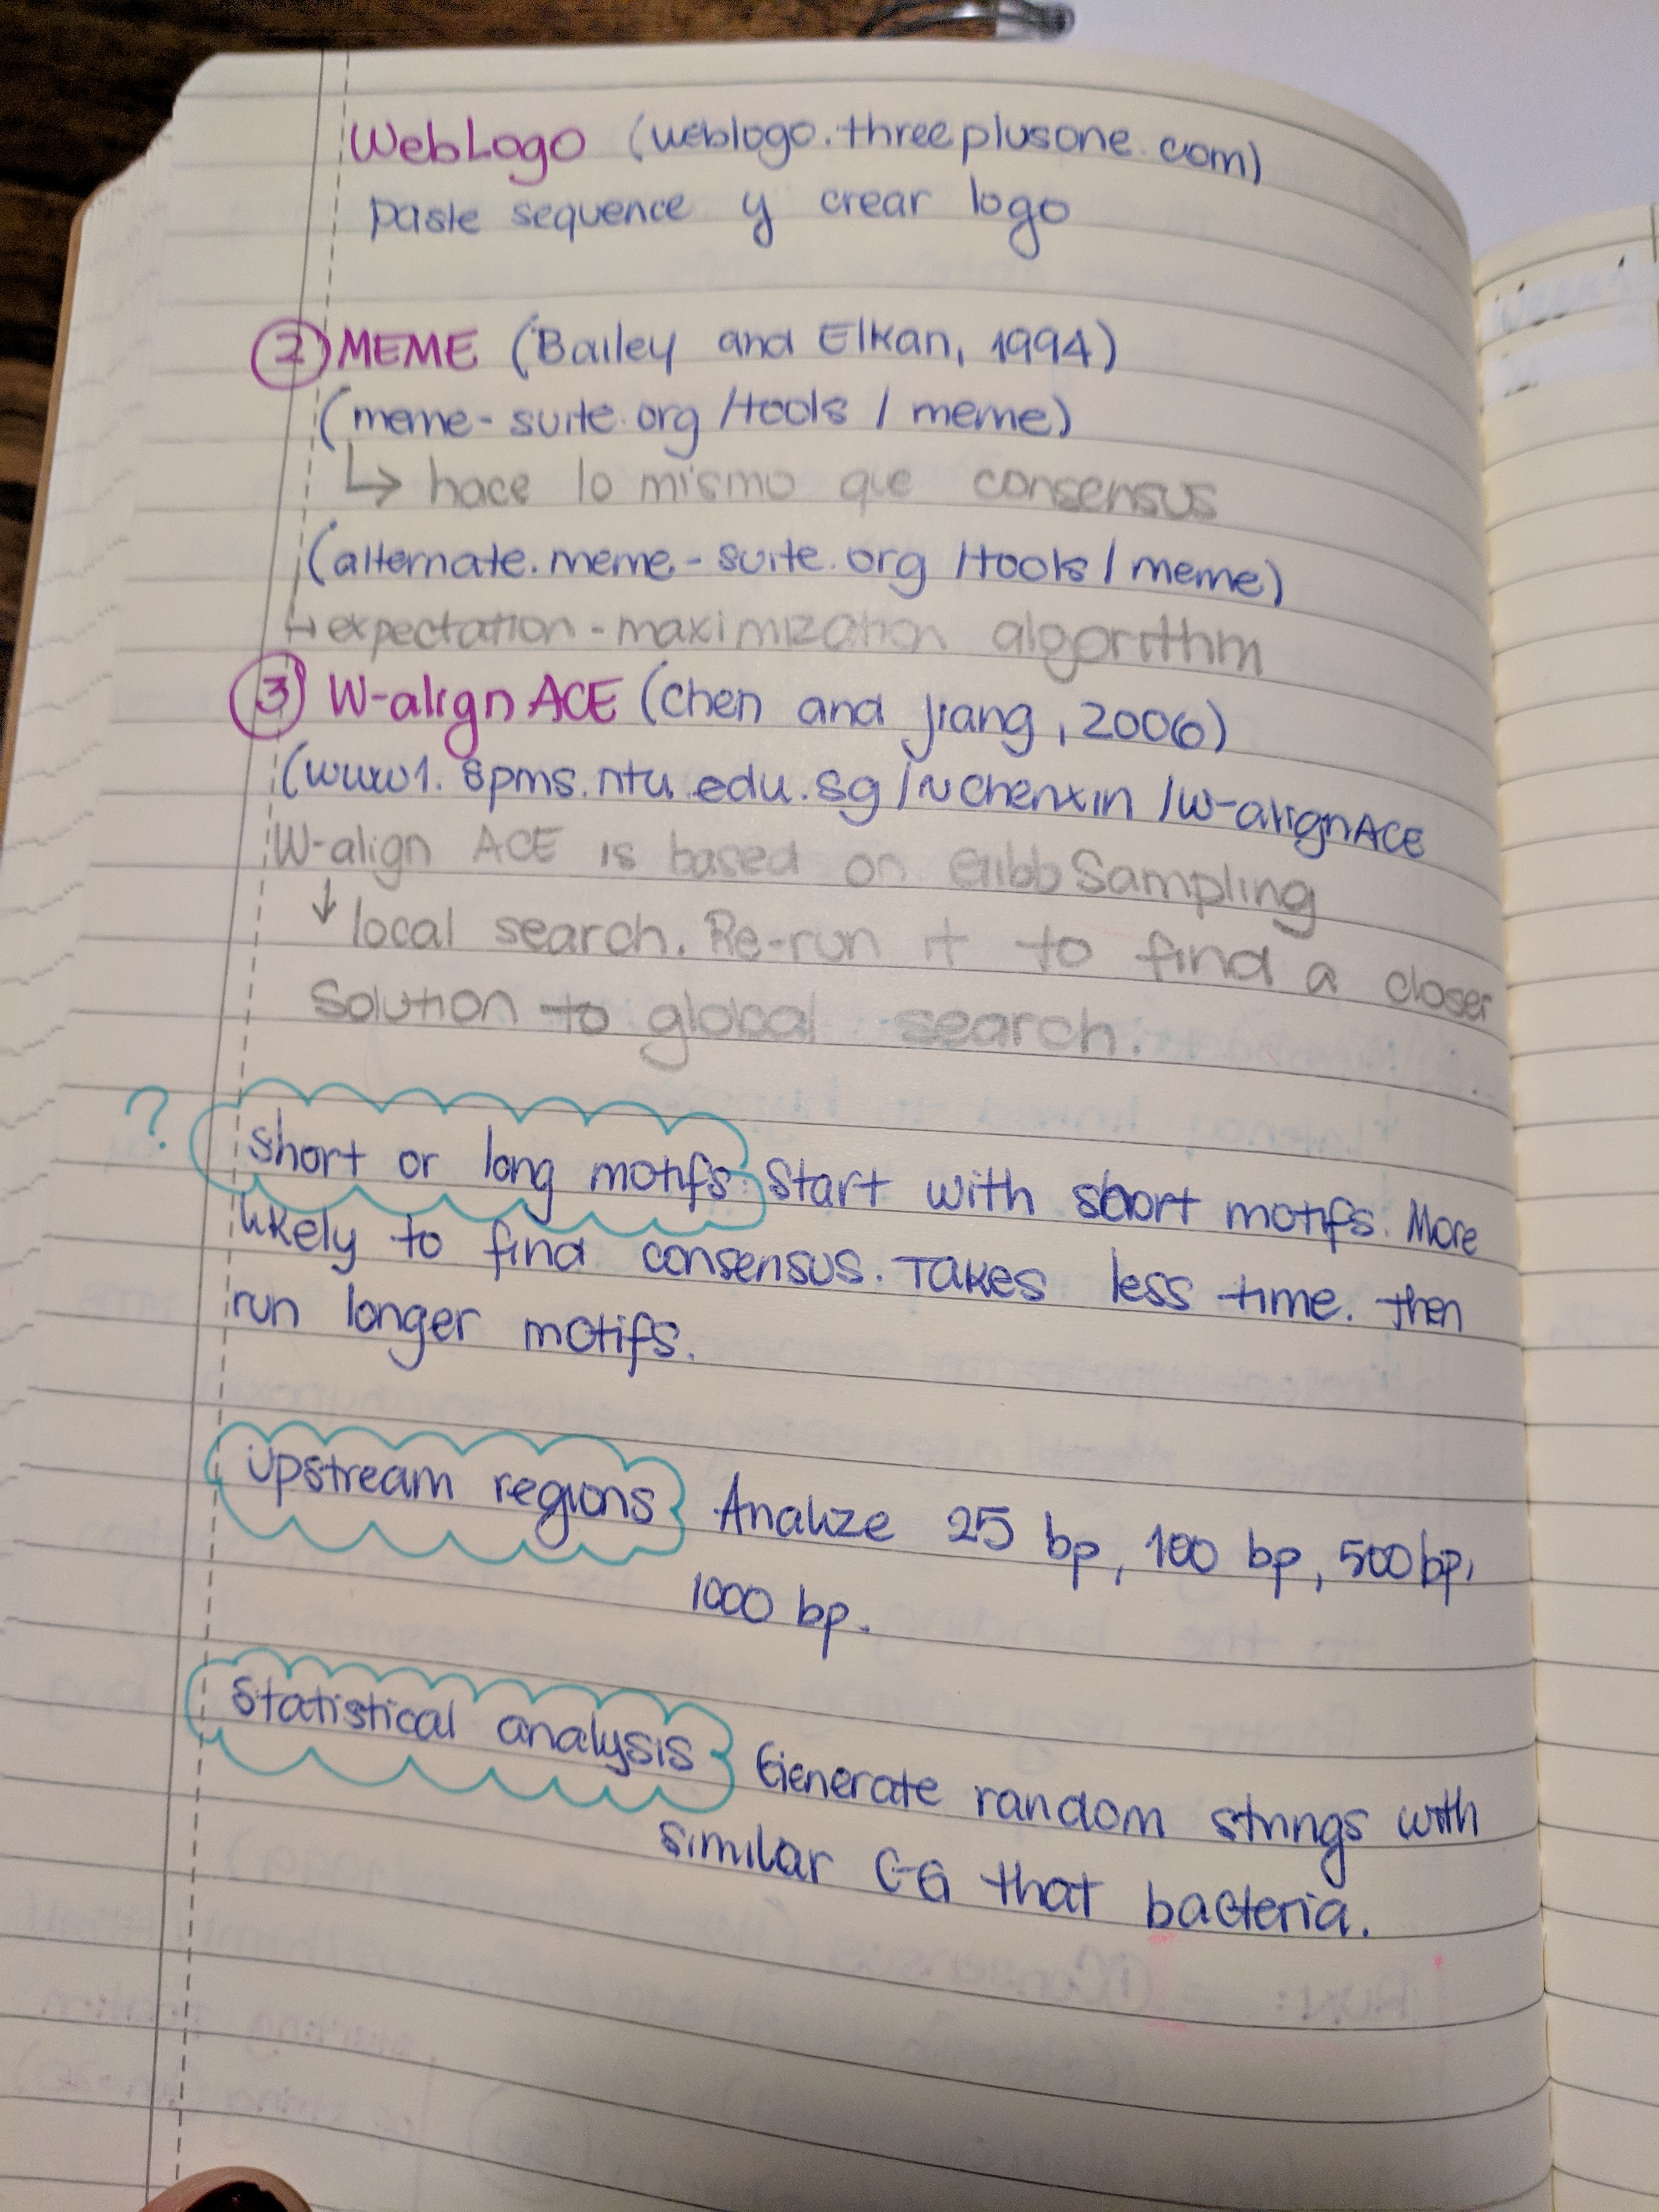 WebLogo (weblogo.threeplusone.com)
paste sequence y crear logo
② MEME (Bailey and Elkan, 1994)
(meme-suite.org/tools/meme)
↳ hace lo mismo que consensus
(alternate.meme-suite.org/tools/meme)
↳ expectation-maximization algorithm
③ W-alignACE (Chen and Jiang, 2006)
(www1.spms.ntu.edu.sg/~chenxin/w-alignACE
W-align ACE is based on Gibb Sampling
↓ local search. Re-run it to find a closer
solution to global search.
? Short or long motifs: Start with short motifs. More
likely to find consensus. Takes less time. Then
run longer motifs.
Upstream regions Analize 25 bp, 100 bp, 500 bp,
1000 bp.
Statistical analysis Generate random strings with
similar CG that bacteria.